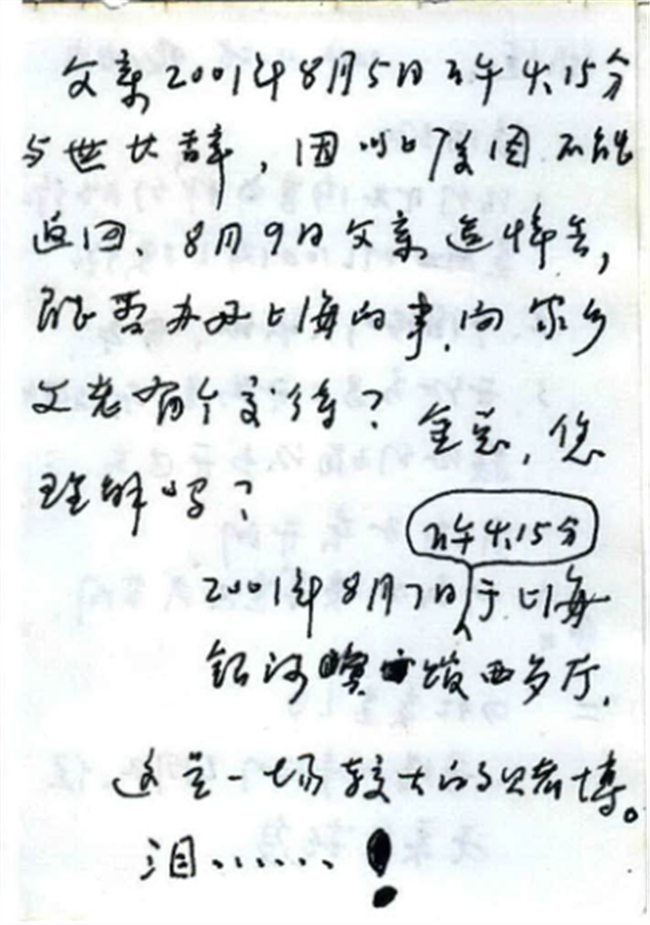 父亲2001年8月5日下午4、15分
与世长辞，因 美国不能
返回。8月9日父亲追悼会，
能否办好上海的事，向家乡
父老有个交待？全意，您
理解吗？
下午4、15分
2001年8月7日于上海
银河宾馆西多厅．
这是一场较大的赌博。
泪……！